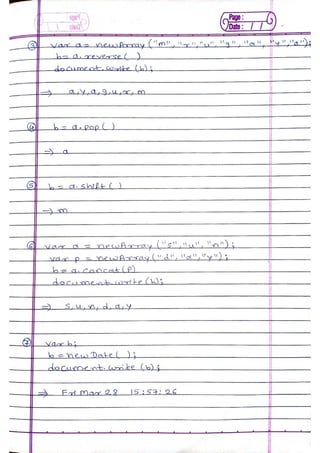 Page :
Date : / /
③ var a = newArray ("m", "r", "u", "g", "a", "y", "a");
b = a.reverse( )
document.write (b);
⇒ a, y, a, g, u, r, m
④ b = a.pop( )
→ a
⑤ b = a.shift( )
→ m
⑥ var a = newArray ("s", "u", "n");
var p = newArray ("d", "a", "y");
b = a.concat(p)
document.write(b);
⇒ s, u, n, d, a, y
⑦ var b;
b = new Date( );
document.write (b);
⇒ Fri Mar 28 15:57:26